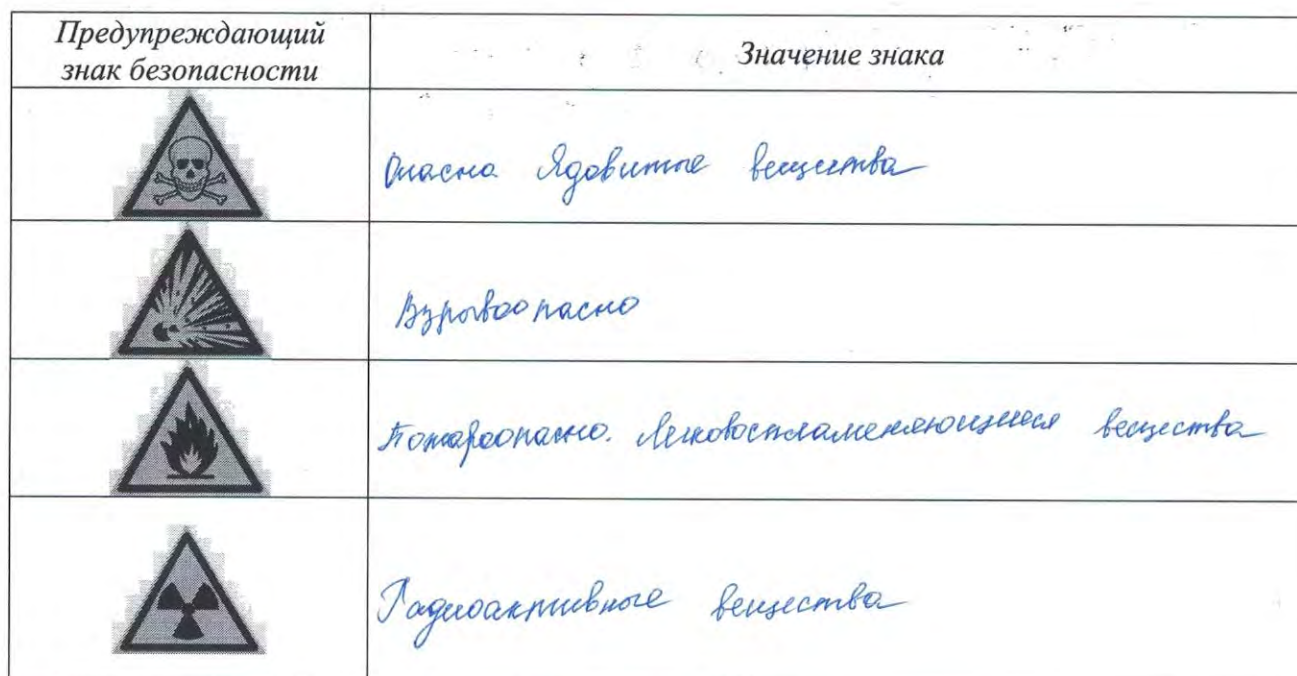 Предупреждающий
знак безопасности
Значение знака
Опасно Ядовитые вещества
Взрывоопасно
Пожароопасно. Легковоспламеняющиеся вещества
Радиоактивные вещества